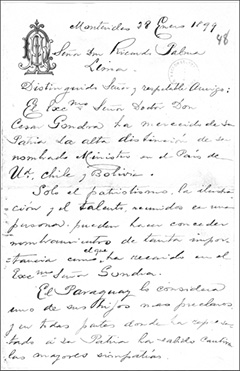 Montevideo 28 Enero 1899
48
Señor Don Ricardo Palma
Lima.
Distinguido Señor y respetable Amigo:
El Excmo Señor Doctor Don
Cesar Gondra ha merecido de su
Patria la alta distinción de ser
nombrado Ministro en el País de
Ud, Chile y Bolivia.
Solo el patriotismo, la ilustra
ción y el talento, reunidos en una
persona, pueden hacer conceder
nombramientos de tanta impor-
tancia como el que ha recaido en el
Excmo Señor Gondra.
El Paraguay lo considera
uno de sus hijos mas preclaros
y en todas partes donde ha represen
tado á su Patria ha sabido
las mayores simpatías.